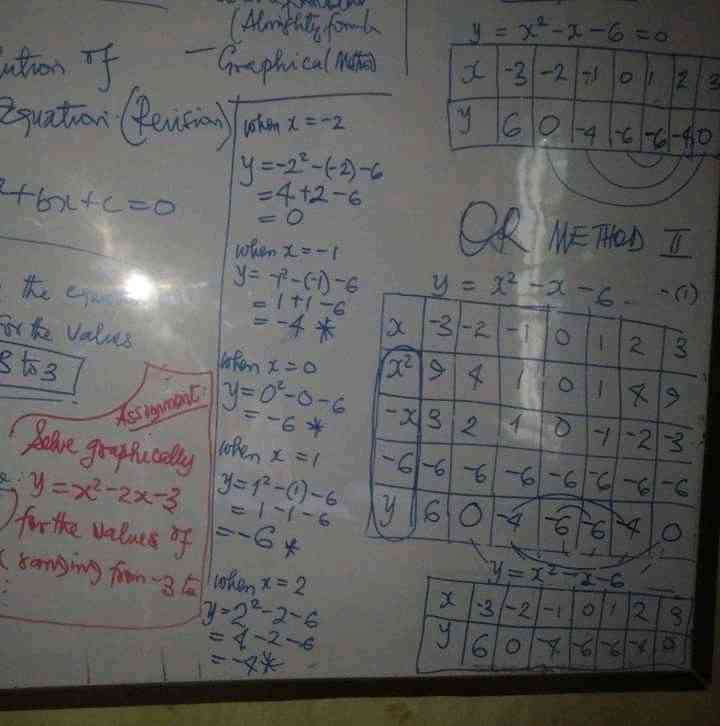 (Almighty formula
ution of
- Graphical (Method)
Equation (Revision)
²+bx+c=0
the
For the values
3 to 3
Assignment:
Solve graphically
y = x²-2x-3
for the values of
ranging from -3 to
when x = -2
y = -2²-(-2)-6
= 4+2-6
= 0
when x = -1
y = -1²-(-1)-6
= 1+1-6
= -4 *
when x = 0
y = 0²-0-6
= -6 *
when x = 1
y = 1²-(1)-6
= 1-1-6
= -6 *
when x = 2
y = 2²-2-6
= 4-2-6
= -4 *
y = x²-x-6 = 0
x -3 -2 -1 0 1 2 3
y 6 0 -4 -6 -6 -4 0
OR METHOD II
y = x²-x-6 -(1)
x -3 -2 -1 0 1 2 3
x² 9 4 1 0 1 4 9
-x 3 2 1 0 -1 -2 -3
-6 -6 -6 -6 -6 -6 -6 -6
y 6 0 -4 -6 -6 -4 0
y = x²-x-6
x -3 -2 -1 0 1 2 3
y 6 0 -4 -6 -6 -4 0